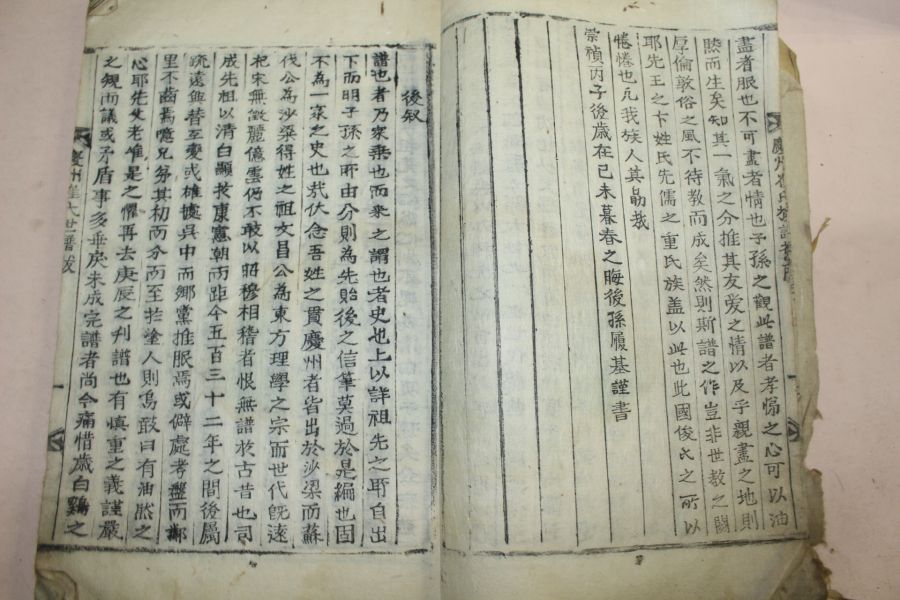 盡者服也不可盡者情也子孫之觀此譜者孝悌之心可以油
然而生矣知其一氣之分推其友爱之情以及乎親盡之地則
厚倫敦俗之風不待教而成矣然則斯譜之作豈非世教之關
耶先王之卞姓氏先儒之重氏族盖以此也此國俊氏之所以
惓惓也凡我族人其勗哉
崇禎丙子後歲在己未暮春之晦後孫履基謹書
後叙
譜也者乃家乘也而乘之謂也者史也上以詳祖先之所自出
下而明子孫之所由分則為先貽後之信筆莫過於是編也固
不為一家之史也哉伏念吾姓之貫慶州者皆出於沙梁而蘇
伐公為沙梁得姓之祖文昌公為東方理學之宗而世代旣遠
祀宋無徵麗億雲仍不敢以昭穆相稽者恨無譜於古昔也司
成先祖以清白顯於康憲朝而距今五百三十二年之間後屬
疏遠興替互變或雄據吳中而鄉黨推服焉或僻處考盤而鄉
里不齒焉噫兄弟其初而分而至於塗人則烏敢曰有油然之
心耶先父老惟是之懼再去庚辰之刋譜也有慎重之義謹嚴
之規而議或矛盾事多乖戾未成完譜者尚今痛惜歲白鷄之
慶州崔氏世譜跋